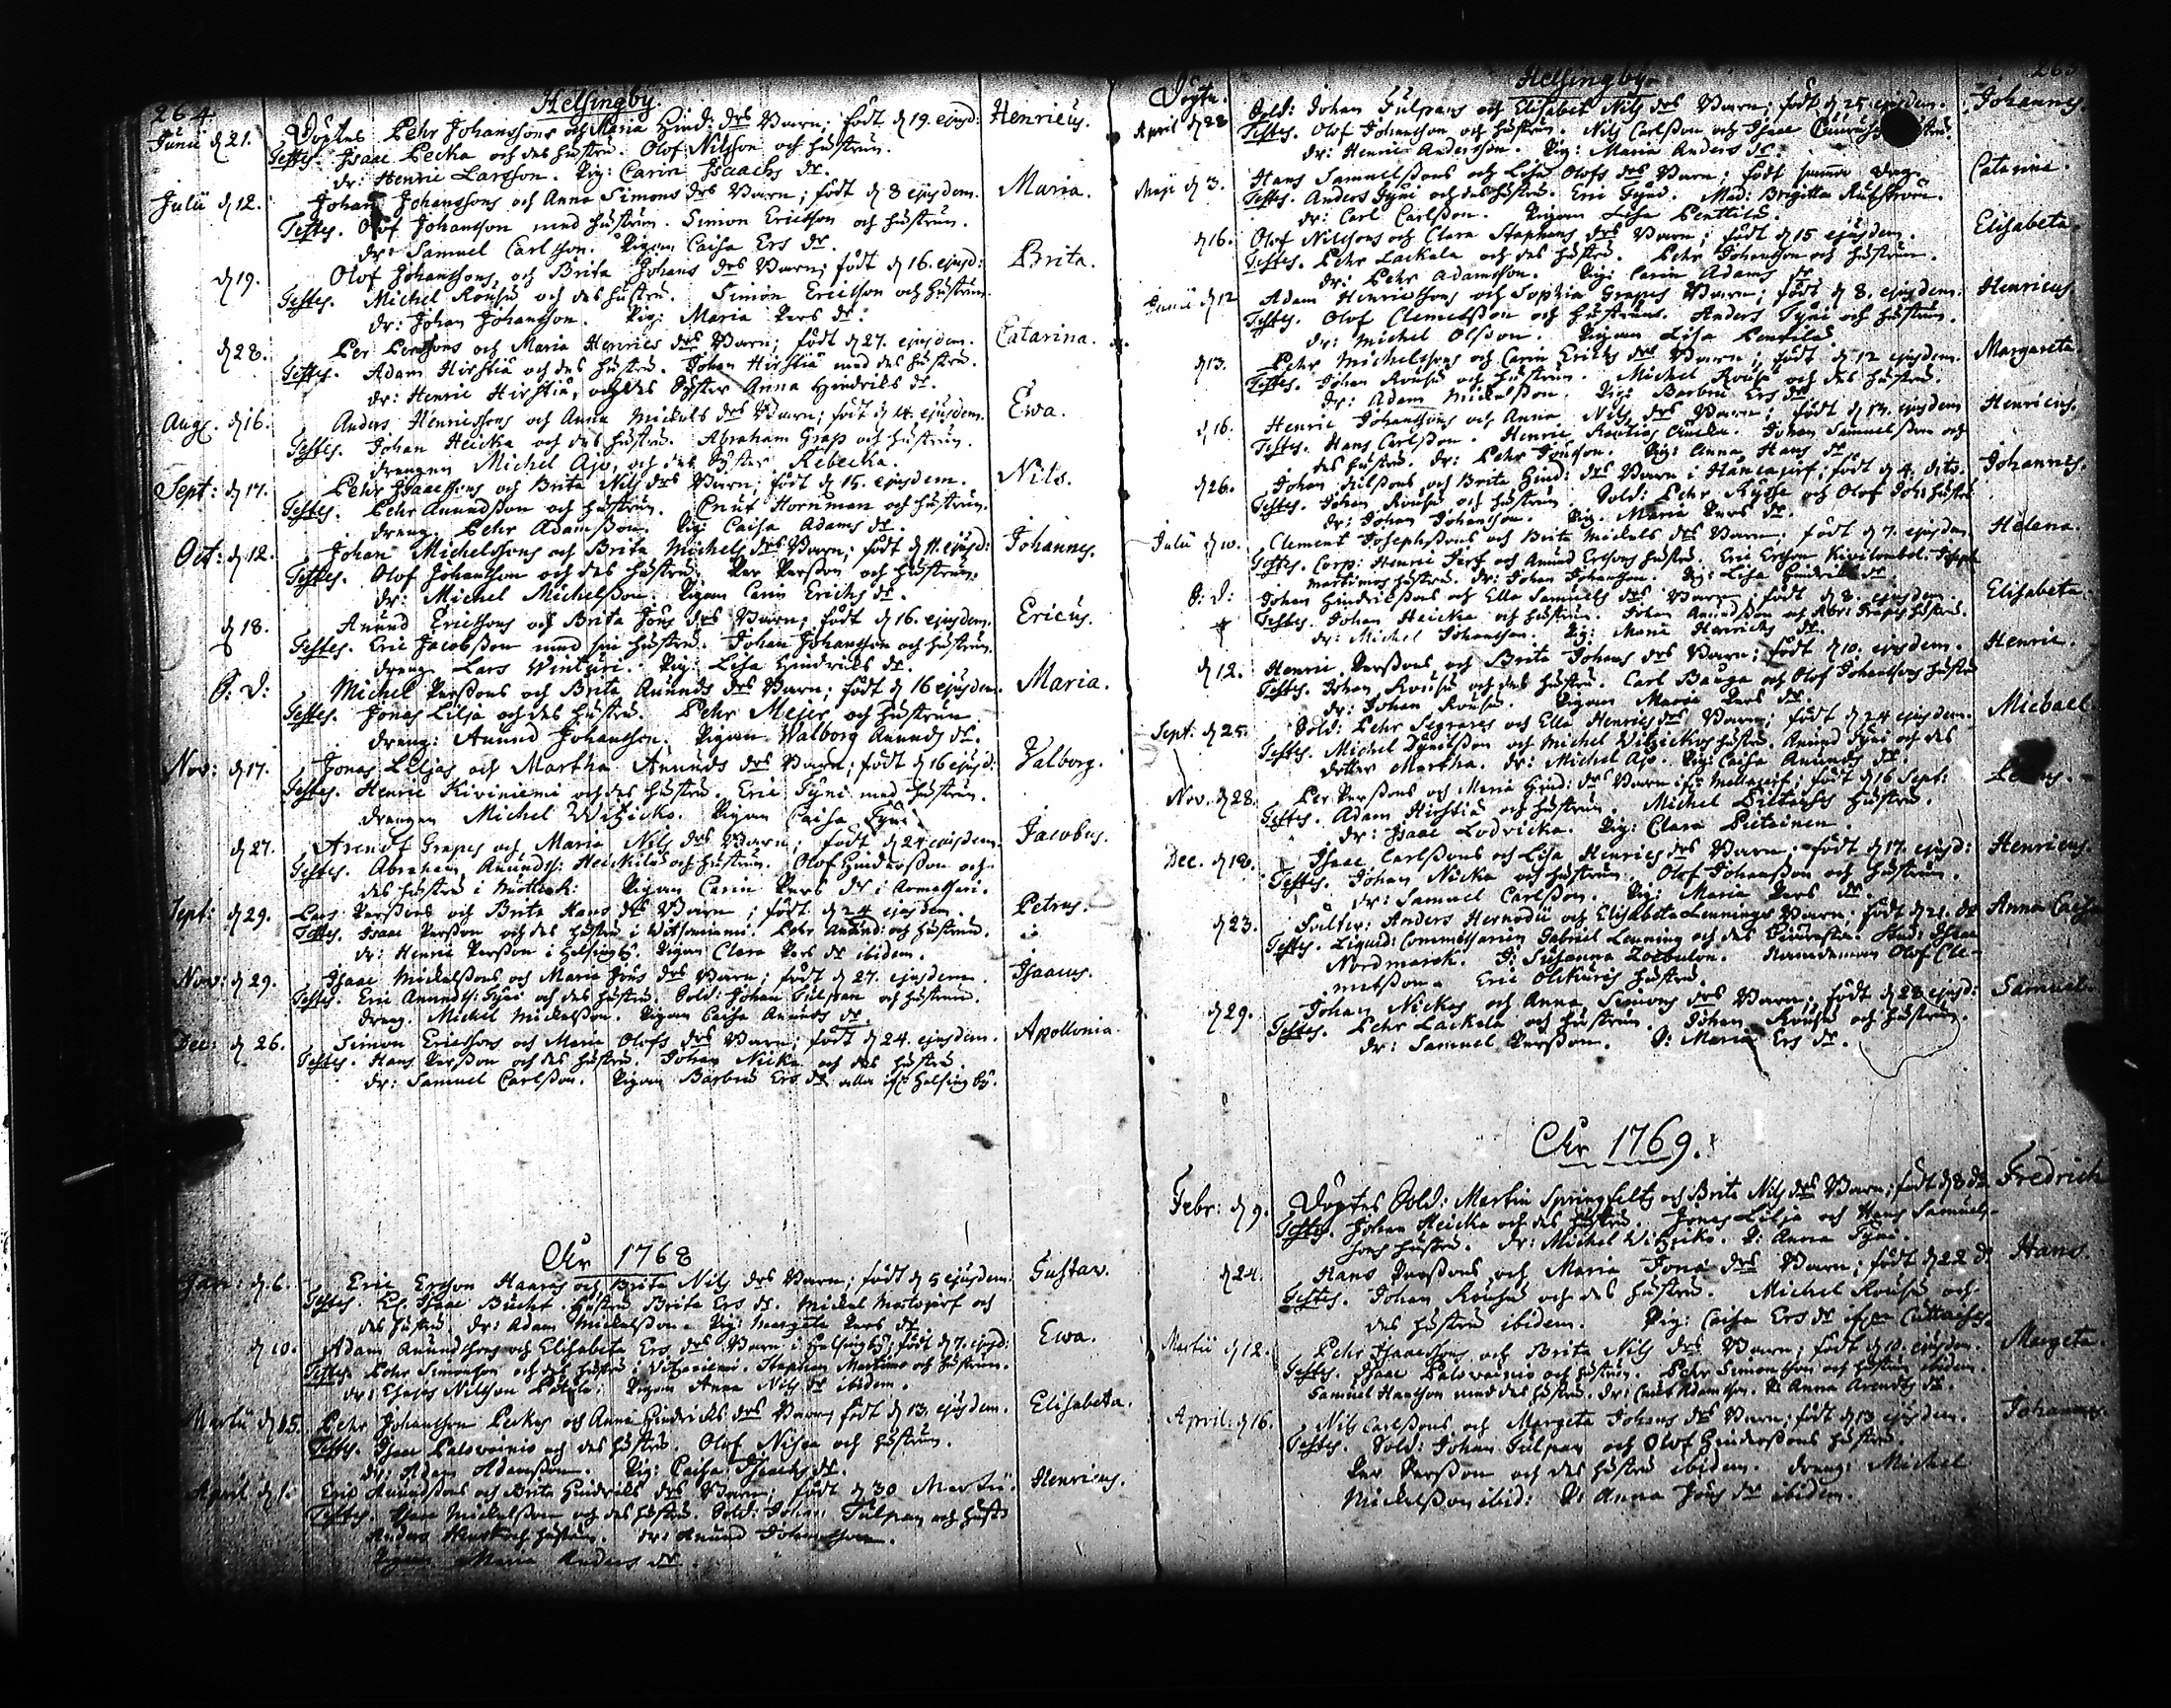 264.
Helsingby.
Junii d 21. Döptes Pehr Johanssons och Maria Hind: drs Barn; födt d 19. ejusd: Henricus.
Testes. Isaac Pecka och des hustru. Olof Nilsson och hustrun.
dr: Henric Larsson. Pig: Carin Isaachs dr.
Julii d 12. Johan Johanssons och Anna Simons drs Barn; födt d 8 ejusdem. Maria.
Testes. Olof Johansson med hustrun. Simon Ericsson och hustrun.
dr: Samuel Carlsson. Pigan Caisa Ers dr.
d 19. Olof Johanssons, och Brita Johans drs Barn; födt d 16. ejusd: Brita.
Testes. Michel Rousu och des hustru. Simon Ericsson och hustrun.
dr: Johan Johansson. Pig: Maria Pers dr.
d 28. Per Perssons och Maria Henrics drs Barn; födt d 27. ejusdem. Catarina.
Testes. Adam Hirstiä och des hustru. Johan Hirstiä med des hustru.
dr: Henric Hirstiä, och des Syster Anna Hindriks dr.
Aug. d 16. Anders Henricssons och Anna Mickels drs Barn; födt d 14 ejusdem. Ewa.
Testes. Johan Heicka och des hustru. Abraham Grap och hustrun.
drengen Michel Ajo, och des Syster Rebecka.
Sept: d 17. Pehr Isaacssons och Brita Nils drs Barn; födt d 15. ejusdem. Nils.
Testes. Pehr Anundsson och hustrun. Cnut Hornman och hustrun.
dreng: Pehr Adamsson. Pig: Caisa Adams dr.
Oct: d 12. Johan Michelssons och Brita Michels drs Barn; födt d 11. ejusd: Johannes.
Testes. Olof Johansson och des hustru. Per Persson och hustrun.
dr: Michel Michelsson. Pigan Carin Erichs dr.
d 18. Anund Ericssons och Brita Jöns drs Barn; födt d 16. ejusdem. Ericus.
Testes. Eric Jacobsson med sin hustru. Johan Johansson och hustrun.
dreng Lars Winturi. Pig: Lisa Hindriks dr.
S: D: Michel Perssons och Brita Anunds drs Barn; födt d 16 ejusdem. Maria.
Testes. Jonas Lilja och des hustru. Pehr Mejer och hustrun
dreng: Anund Johansson. Pigan Walborg Anunds dr.
Nov: d 17. Jonas Liljas och Martha Anunds drs Barn; födt d 16 ejusd: Valborg.
Testes. Henric Kiviniemi och des hustru. Eric Fyni med hustrun.
drengen Michel Witzicko. Pigan Caisa Fyni.
d 27. Arendt Grapes och Maria Nils drs Barn; födt d 24 ejusdem. Jacobus.
Testes. Abraham Anundss: Heickilä och hustrun. Olof Hindersson och
des hustru i Niotkank: Pigan Carin Pers dr i Armassari.
Sept: d 29. Lars Perssons och Brita Hans drs Barn; födt d 24 ejusdem. Petrus.
Testes. Isaac Persson och des hustru i Witsaniemi. Pehr Anund: och hustrun.
dr: Henric Persson i Helsingby. Pigan Clara Pers dr ibidem.
Nov: d 29. Isaac Mickelssons och Maria Jöns drs Barn; födt d 27. ejusdem. Isaacus.
Testes. Eric Anundss: Fyni och des hustru. Sold: Johan Tulpan och hustrun.
dreng. Mickel Mickelsson. Pigan Caisa Anunds dr.
Dec: d 26. Simon Ericssons och Maria Olofs drs Barn; födt d 24. ejusdem. Apollonia.
Testes. Hans Persson och des hustru. Johan Nicka och des hustru.
dr: Samuel Carlsson. Pigan Barbru Ers dr alla af Helsingby.
Ahr 1768
Jan: d 6. Eric Ersson Haaras och Brita Nils drs Barn; födt d 5 ejusdem: Gustav.
Testes. Isaac Bucht. Hustru Brita Ers dr. Mickel Matojerf och
des hustru. dr: Adam Mickelsson. Pig: Margeta Pers dr.
d 10. Adam Anundssons och Elisabeta Ers drs Barn i Helsingby; födt d 7. ejusd: Ewa.
Testes. Pehr Simonsson och des hustru i Vitsaniemi. Staphan Martimo och hustrun.
dr: Nilsson. Pigan Anna Nils dr ibidem.
Martii d 15. Pehr Johansson Peckas och Anna Hindricks drs Barn; födt d 13. ejusdem. Elisabeta.
Testes. Isaac Palovainio och des hustru. Olof Niska och hustrun.
dr: Adam Adamsson. Pig: Caisa Isaachs dr.
April d 1. Eric Anundssons och Brita Hindriks drs Barn; födt d 30 Martii. Henricus.
Testes. Isaac Mickelsson och des hustru. Sold: Johan Tulpan och hustr:
Anders och hustrun. dr: Anund Johansson.
Pigan Maria Anders dr.
265
Helsingby.
Döptes.
April d 28 Sold: Johan Tulpans och Elisabet Nils drs Barn; födt d 25 ejusdem. Johannes.
Testes. Olof Johansson och hustrun. Nils Carlsson och Isaac hustru.
dr: Henric Andersson. Pig: Maria Anders dr.
Maji d 3. Hans Samuelssons och Lisa Olofs drs Barn; födt samma dag. Catarina.
Testes. Anders Fyni och des hustru. Eric Fyni. Mad: Brigitta
dr: Carl Carlsson. Pigan Lisa Penttilä.
d 16. Olof Nilssons och Clara Staphans drs Barn; födt d 15 ejusdem. Elisabeta.
Testes. Pehr Lackala och des hustru. Pehr Johansson och hustrun.
dr: Pehr Adamsson. Pig: Carin Adams dr.
Junii d 12 Adam Henricssons och Sophia Grapes Barn; födt d 8. ejusdem: Henricus
Testes. Olof Clemetsson och hustrun. Anders Fyni och hustrun.
dr: Michel Olsson. Pigan Lisa Pentilä
d 13. Pehr Michelssons och Carin Erichs drs Barn; födt d 12 ejusdem. Margareta.
Testes. Johan Rousu och hustrun. Michel Rousu och des hustru.
dr: Adam Mickelsson. Pig: Barbru Ers dr.
d 16. Henric Johanssons och Anna Nils drs Barn; födt d 13. ejusdem Henricus.
Testes. Hans Carlsson. Henric Johan Samuelsson och
des hustru. dr: Pehr Jönsson. Pig: Anna Hans dr
d 26. Johan Nilssons och Brita Hind: drs Barn i födt d 4. dito. Johannes.
Testes. Johan Rousu och hustrun. Sold: Pehr och Olof Johs: hustru
dr: Johan Johansson. Pig. Maria Pers dr.
Julii d 10. Clement Josephssons och Brita Mickels drs Barn; födt d 7. ejusdem Helena.
Testes. Corp: Henric Jerf och Anund Erssons hustru. Eric Ersson
Martimos hustru. dr: Johan Johansson. Pig: Lisa Hindriks dr.
S: D: Johan Hindrikssons och Ella Samuels drs Barn; födt d 8. ejusdem. Elisabeta.
Testes. Johan Heicka och hustrun. Johan Anundsson och Abr: Graps hustru.
dr: Michel Johansson. Pig: Maria Henrichs dr.
d 12. Henric Perssons och Brita Johans drs Barn; födt d 10. ejusdem. Henric.
Testes. Johan Rousu och des hustru. Carl Bauga och Olof Johanssons hustru
dr: Johan Rousu. Pigan Maria Pers dr.
Sept: d 25. Sold: Pehr Segrares och Ella Henrics drs Barn; födt d 24 ejusdem. Michael.
Testes. Michel och Michel Witzickos hustru. Anund Fyni och des
dotter Martha. dr: Michel Ajo. Pig: Caisa Anunds dr.
Nov. d 28. Per Perssons och Maria Hind: drs Barn födt d 16 Sept:
Testes. Adam Hirstiä och hustrun. Michel hustru.
dr: Isaac Lodvicka. Pig: Clara Pietainen.
Dec. d 18. Isaac Carlssons och Lisa Henrics drs Barn; födt d 17. ejusd: Henricus.
Testes. Johan Nicka och hustrun. Olof Johansson och hustrun.
dr: Samuel Carlsson. Pig: Maria Pers dr.
d 23. Anders Hernodii och Elisabeta Lennings Barn. födt d 21. dr Anna Caisa
Testes. Liquid: Commissarien Gabriel Lenning och des
Nordmarck. J: Susanna Nämdeman Olof Cle-
metsson. Eric hustru.
d 29. Johan Nickas och Anna Simons drs Barn; födt d 28 ejusd: Samuel.
Testes. Pehr Lackala och hustrun. Johan Rousu och hustrun.
dr: Samuel Persson. P: Maria Ers dr.
Ahr 1769.
Febr: d 9. Döptes Sold: Martin Springfelts och Brita Nils drs Barn; födt d 8 ds Fredrich
Testes. Johan Heicka och des hustru. Jonas Lilja och Hans Samuels-
sons hustru. dr: Michel Witzicko. P: Anna Fyni.
d 24. Hans Perssons och Maria Jöns drs Barn; födt d 22 ds Hans
Testes. Johan Rousu och des hustru. Michel Rousu och
des hustru ibidem. Pig: Caisa Ers dr
Martii d 12. Pehr Isaacssons och Brita Nils drs Barn; födt d 10. ejusdem. Margeta.
Testes. Isaac Palovainio och hustrun. Pehr Simonsson och hustru ibidem.
Samuel Hansson med des hustru. dr: Cnut Adamsson. P: Anna Arendts dr.
April d 16. Nils Carlssons och Margeta Johans drs Barn; födt d 13 ejusdem. Johannes.
Testes. Sold: Johan Tulpan och Olof Hinderssons hustru
Per Persson och des hustru ibidem. dreng: Michel
Mickelsson ibid: P: Anna Jöns dr ibidem.